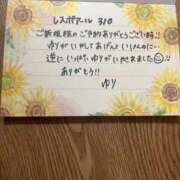 レスポアール 310
ご新規様のご予約ありがとうございます!!
ゆりがいかしてあげんといけんのに…
逆にいっぱいゆりがいかされました
ありがとう!!
ゆり